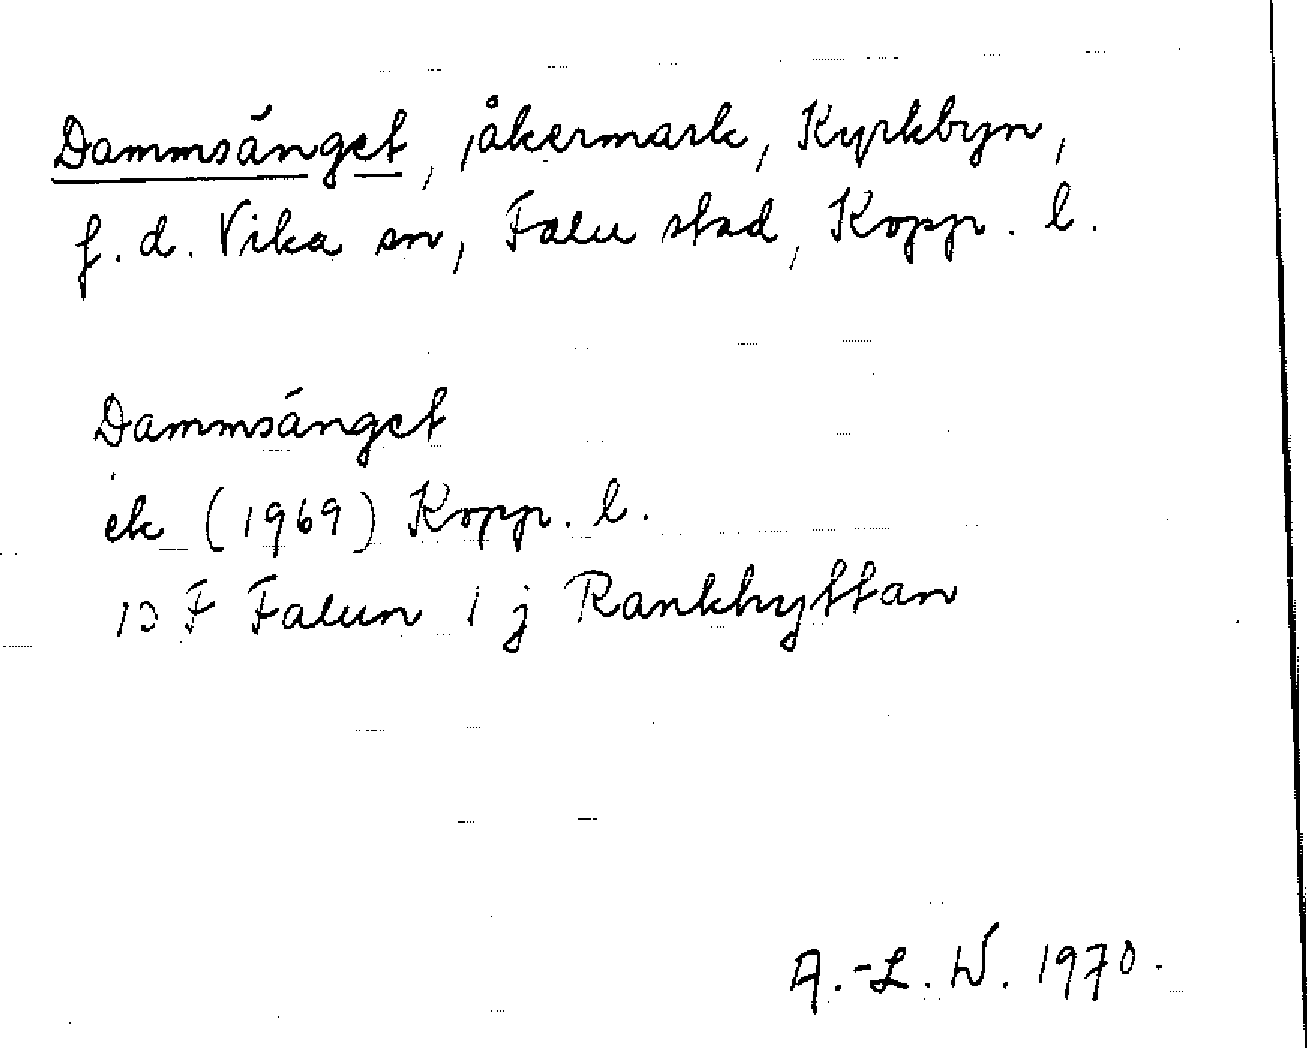 Dammsänget, åkermark, Kyrkbyn,
f. d. Vika sn, Falu stad, Kopp. l.
Dammsänget
ek (1969) Kopp. l.
13 F Falun 1 j Rankhyttan
A.-L. W. 1970.